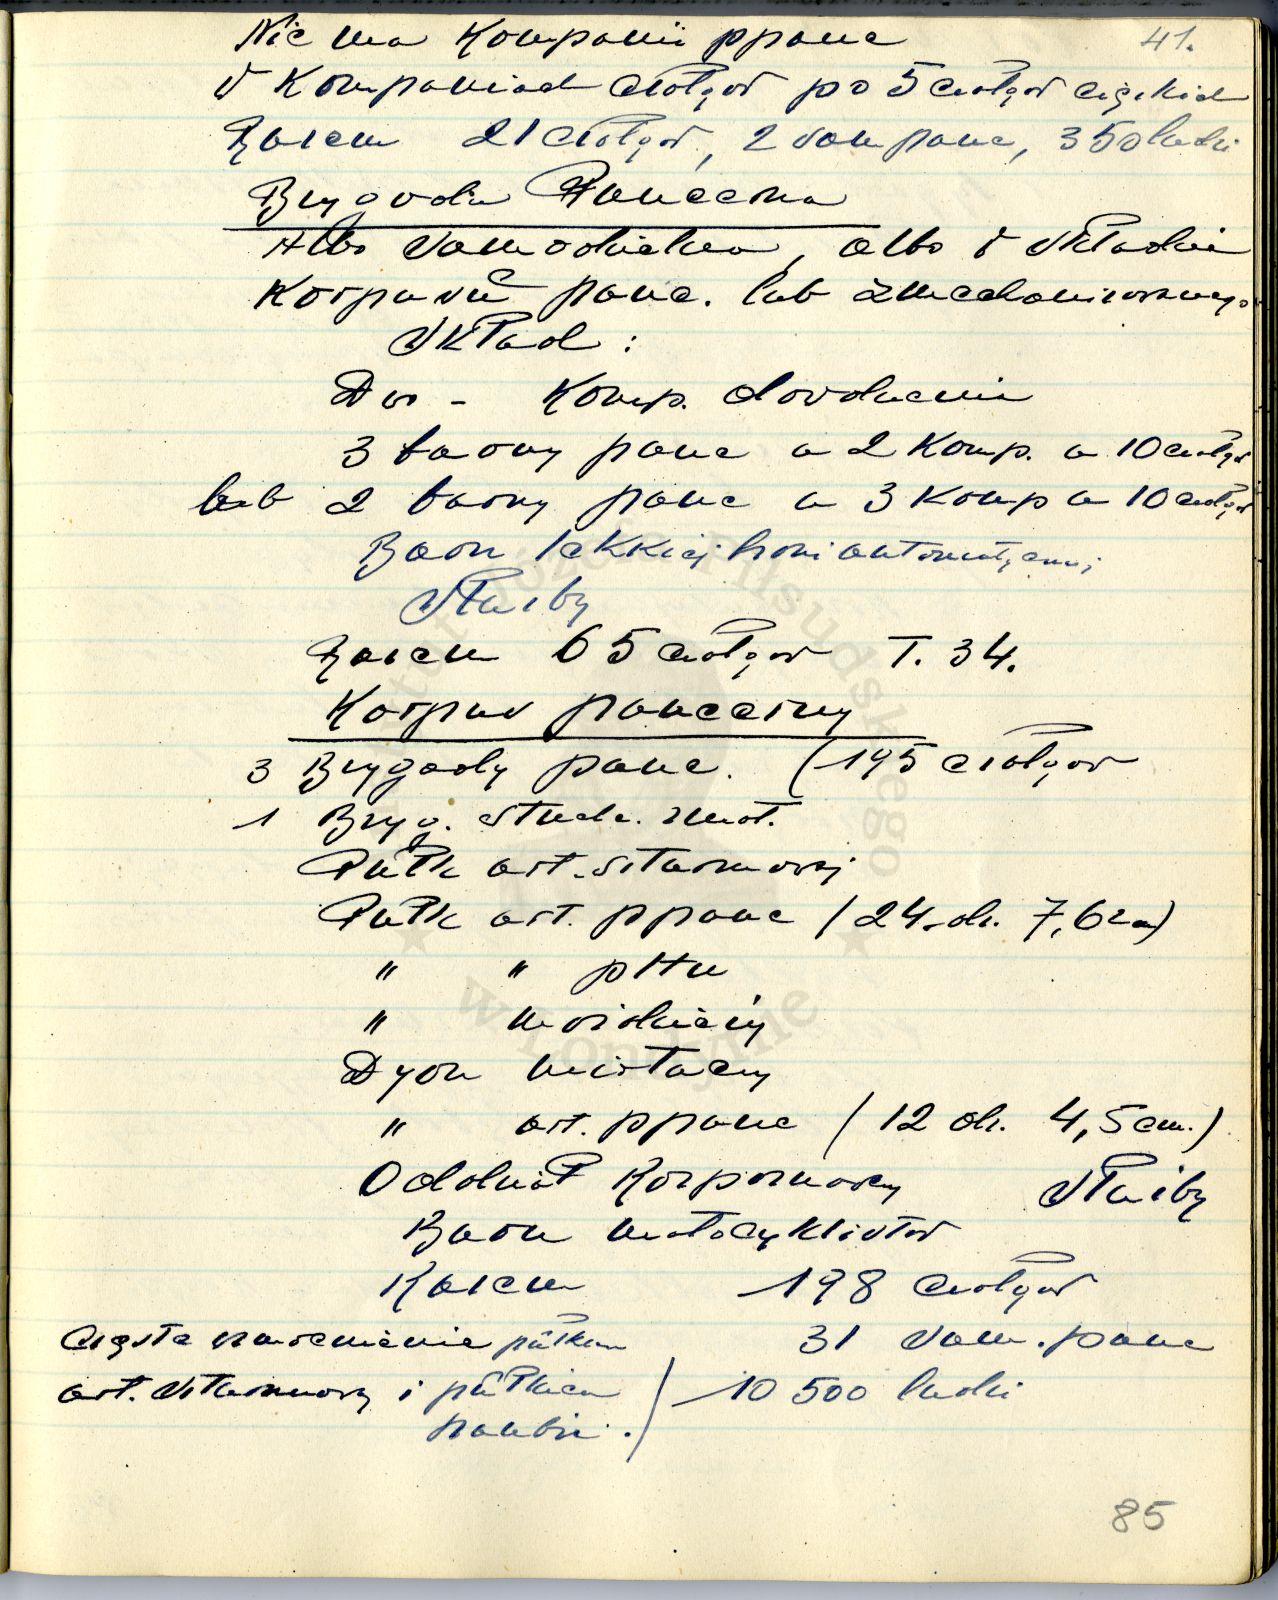 41.
Nie ma Kompanii ppanc
W Kompaniach czołgów po 5 czołgów ciężkich
Razem 21 czołgów, 2 sam panc, 350 ludzi
Brygada Pancerna
Albo samodzielna, albo w składzie
Korpusu panc. lub zmechanizowanego
Skład:
Dw - Komp. dowodzenia
3 baony panc a 2 Komp. a 10 czołgów
lub 2 baony panc a 3 Komp a 10 czołgów
Baon lekkiej broni automatycznej
Służby
Razem 65 czołgów T. 34.
Korpus pancerny
3 Brygady panc. (195 czołgów
1 Bryg. strzelc. zmot.
Pułk art. szturmowej
Pułk art. ppanc (24. dz. 7,62cm)
" " plotn
" moździeży
Dyon miotaczy
" art. ppanc (12 dz. 4,5 cm.)
Oddział Rozpoznawczy Służby
Baon motocyklistów
Razem 198 czołgów
Częste wzmocnienie pułkiem 31 sam. panc
art. szturmowej i pułkiem / 10 500 ludzi
haubic.
85
Instytut Józefa Piłsudskiego
w Londynie